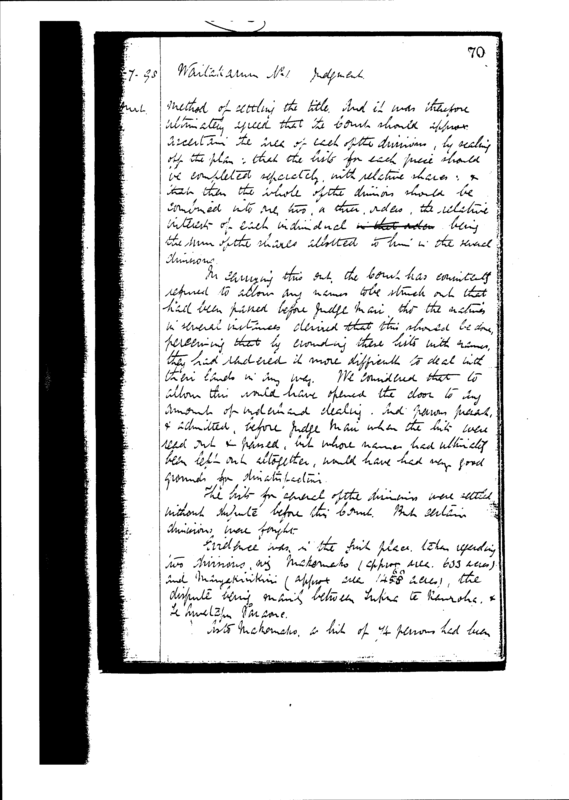 70
-7-98 Waitaharuru No 1 Judgment
Court
method of settling the title. And it was therefore
ultimately agreed that the Court should approx
ascertain the area of each of the divisions, by scaling
off the plan: that the lists for each piece should
be completed separately, with relative shares: &
that then the whole of the divisions should be
combined into one, two, or three, orders, the relative
interest of each individual in that order being
the sum of the shares allotted to him in the several
divisions.
In carrying this out, the Court has consistently
refused to allow any names to be struck out that
had been passed before Judge Mair, tho' the natives
in several instances desired that this should be done,
perceiving that by crowding these lists with names,
they had rendered it more difficult to deal with
their lands in any way. We considered that to
allow this would have opened the door to any
amount of underhand dealing. And persons present,
& admitted, before Judge Mair when the lists were
read out & passed, but whose names had ultimately
been left out altogether, would have had very good
grounds for dissatisfaction.
The lists for several of the divisions were settled
without dispute before this Court. But certain
divisions were fought.
Evidence was, in the first place, taken regarding
two divisions, viz Makomako (approx area. 633 acres)
and Mangakirikiri (approx area 1488 acres), the
dispute being mainly between &
As to Makomako, a list of 74 persons had been